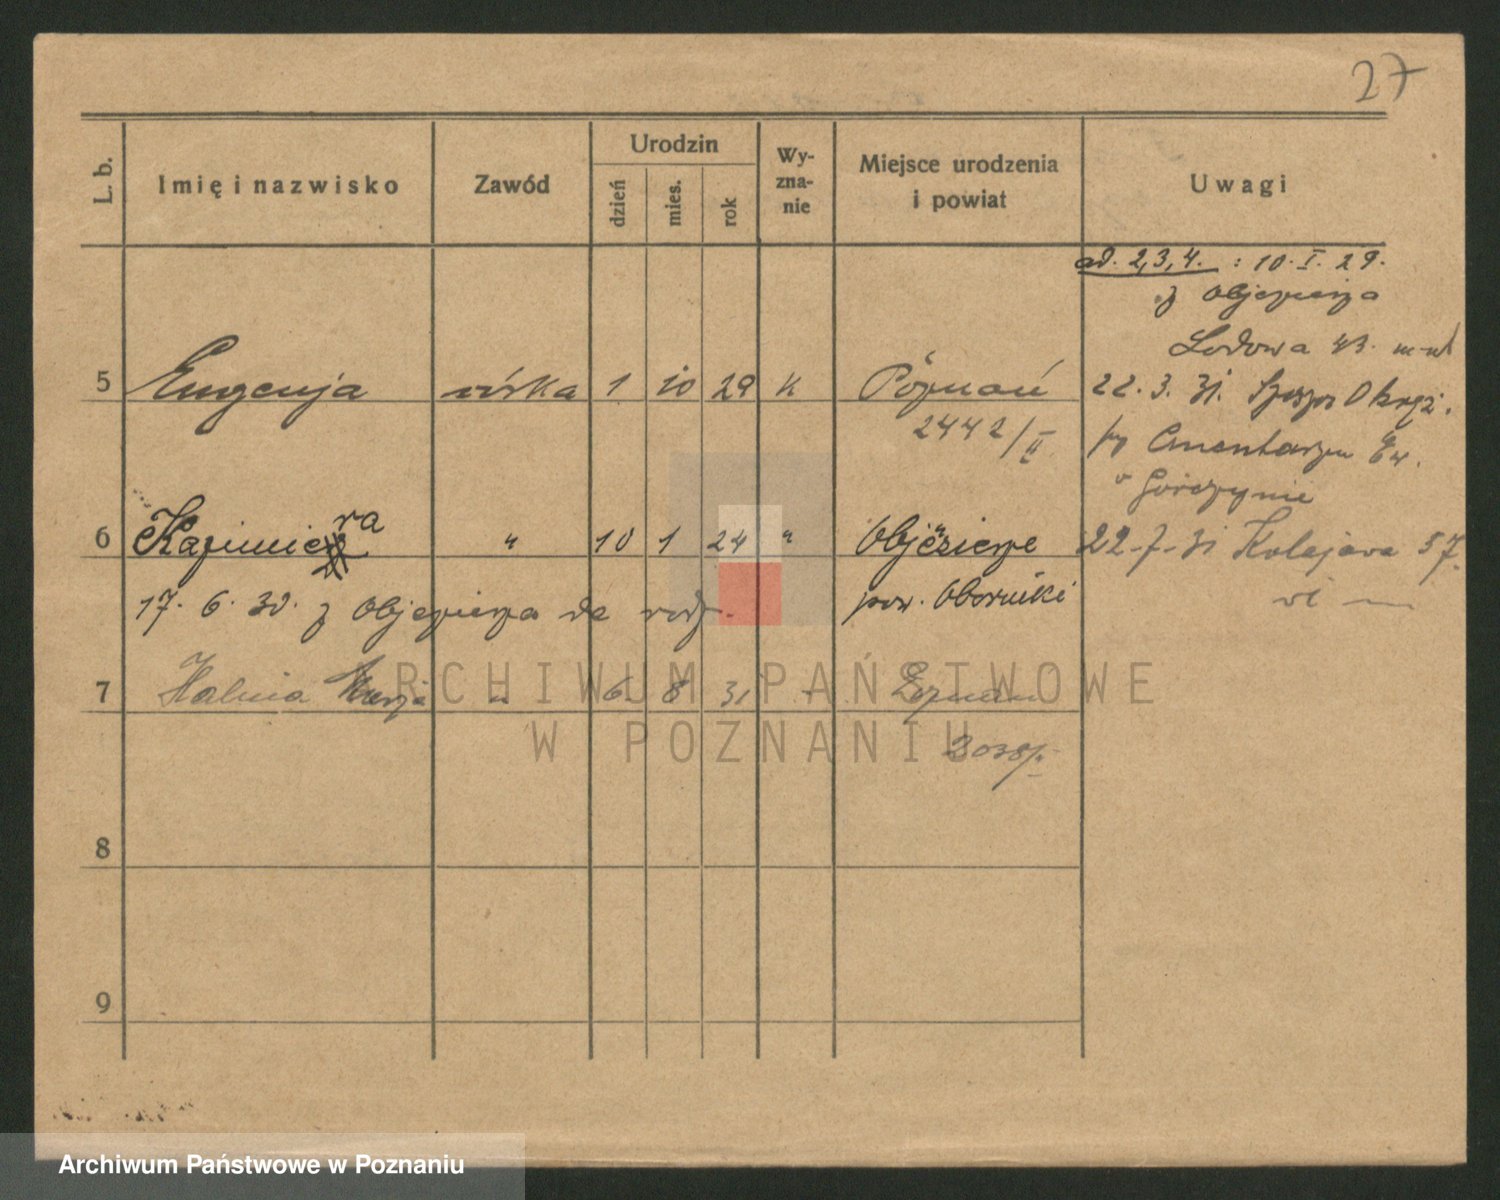 27
L. b.
Imię i nazwisko
Zawód
Urodzin
dzień
mies.
rok
Wy-
zna-
nie
Miejsce urodzenia
i powiat
Uwagi
ad. 2,3,4. : 10. I. 29.
z Objezierza
Lodowa
5 Eugenja córka 1 10 29 k Poznań
2442/II
22. 3. 31.
przy Cmentarzu Ew.
w Górczynie
6 Kazimiera " 10 1 24 " Objezierze
22-7-31 Kolejowa 57.
17. 6. 30. z Objezierza do rodz.
pow. Oborniki
7 Halina " 6 8 31 Poznań
8
9
ARCHIWUM PAŃSTWOWE
W POZNANIU
Archiwum Państwowe w Poznaniu